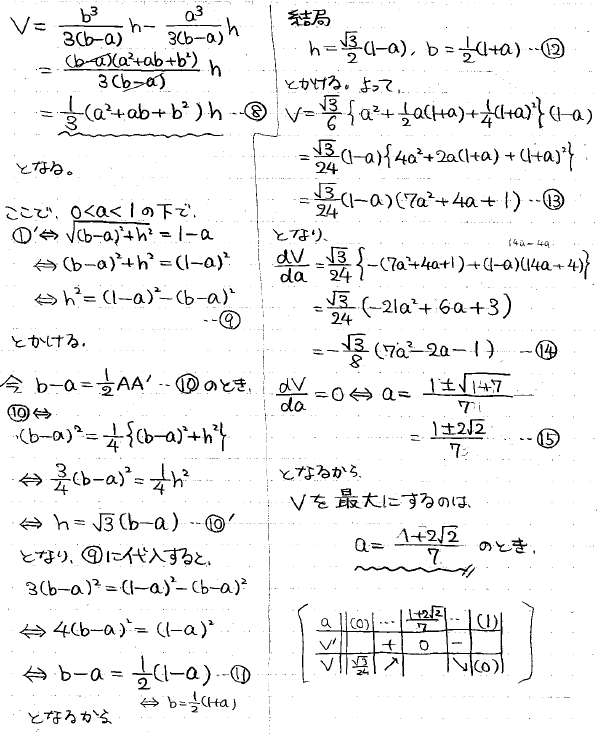 V = b³/3(b-a) h - a³/3(b-a) h
= (b-a)(a²+ab+b²)/3(b-a) h
= 1/3(a²+ab+b²)h …⑧
となる。
ここで、0<a<1の下で、
①′⇔ √((b-a)²+h²) = 1-a
⇔ (b-a)²+h² = (1-a)²
⇔ h² = (1-a)²-(b-a)²
…⑨
とかける。
今 b-a = 1/2 AA′ …⑩ のとき、
⑩⇔
(b-a)² = 1/4{(b-a)²+h²}
⇔ 3/4(b-a)² = 1/4h²
⇔ h = √3(b-a) …⑩′
となり、⑨に代入すると、
3(b-a)² = (1-a)²-(b-a)²
⇔ 4(b-a)² = (1-a)²
⇔ b-a = 1/2(1-a) …⑪
⇔ b=1/2(1+a)
となるから
結局
h = √3/2(1-a), b = 1/2(1+a) …⑫
とかける。よって、
V = √3/6{a²+1/2a(1+a)+1/4(1+a)²}(1-a)
= √3/24(1-a){4a²+2a(1+a)+(1+a)²}
= √3/24(1-a)(7a²+4a+1) …⑬
となり、
14a-4a
dV/da = √3/24{-(7a²+4a+1)+(1-a)(14a+4)}
= √3/24(-21a²+6a+3)
= -√3/8(7a²-2a-1) …⑭
dV/da = 0 ⇔ a = 1±√(1+7)/7
= 1±2√2/7 …⑮
となるから、
Vを最大にするのは、
a = 1+2√2/7 のとき、
a (0) … 1+2√2/7 … (1)
V′ + 0 -
V √3/24 ↗ ↘ (0)